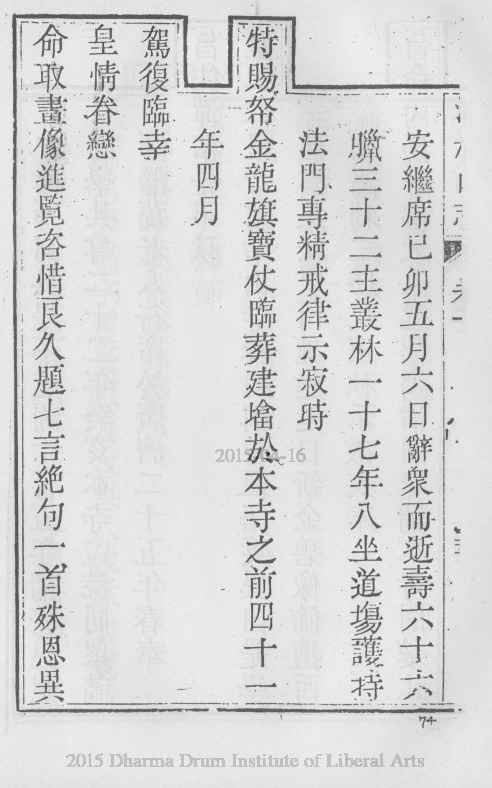 安繼席己卯五月六日辭衆而逝壽六十六
臘三十二主叢林一十七年八坐道塲護持
法門專精戒律示寂時
特賜帑金龍旗寶仗臨葬建㙮於本寺之前四十一
年四月
駕復臨幸
皇情眷戀
命取畫像進覧咨惜良久題七言絶句一首殊恩異
74
2015-04-16
2015 Dharma Drum Institute of Liberal Arts